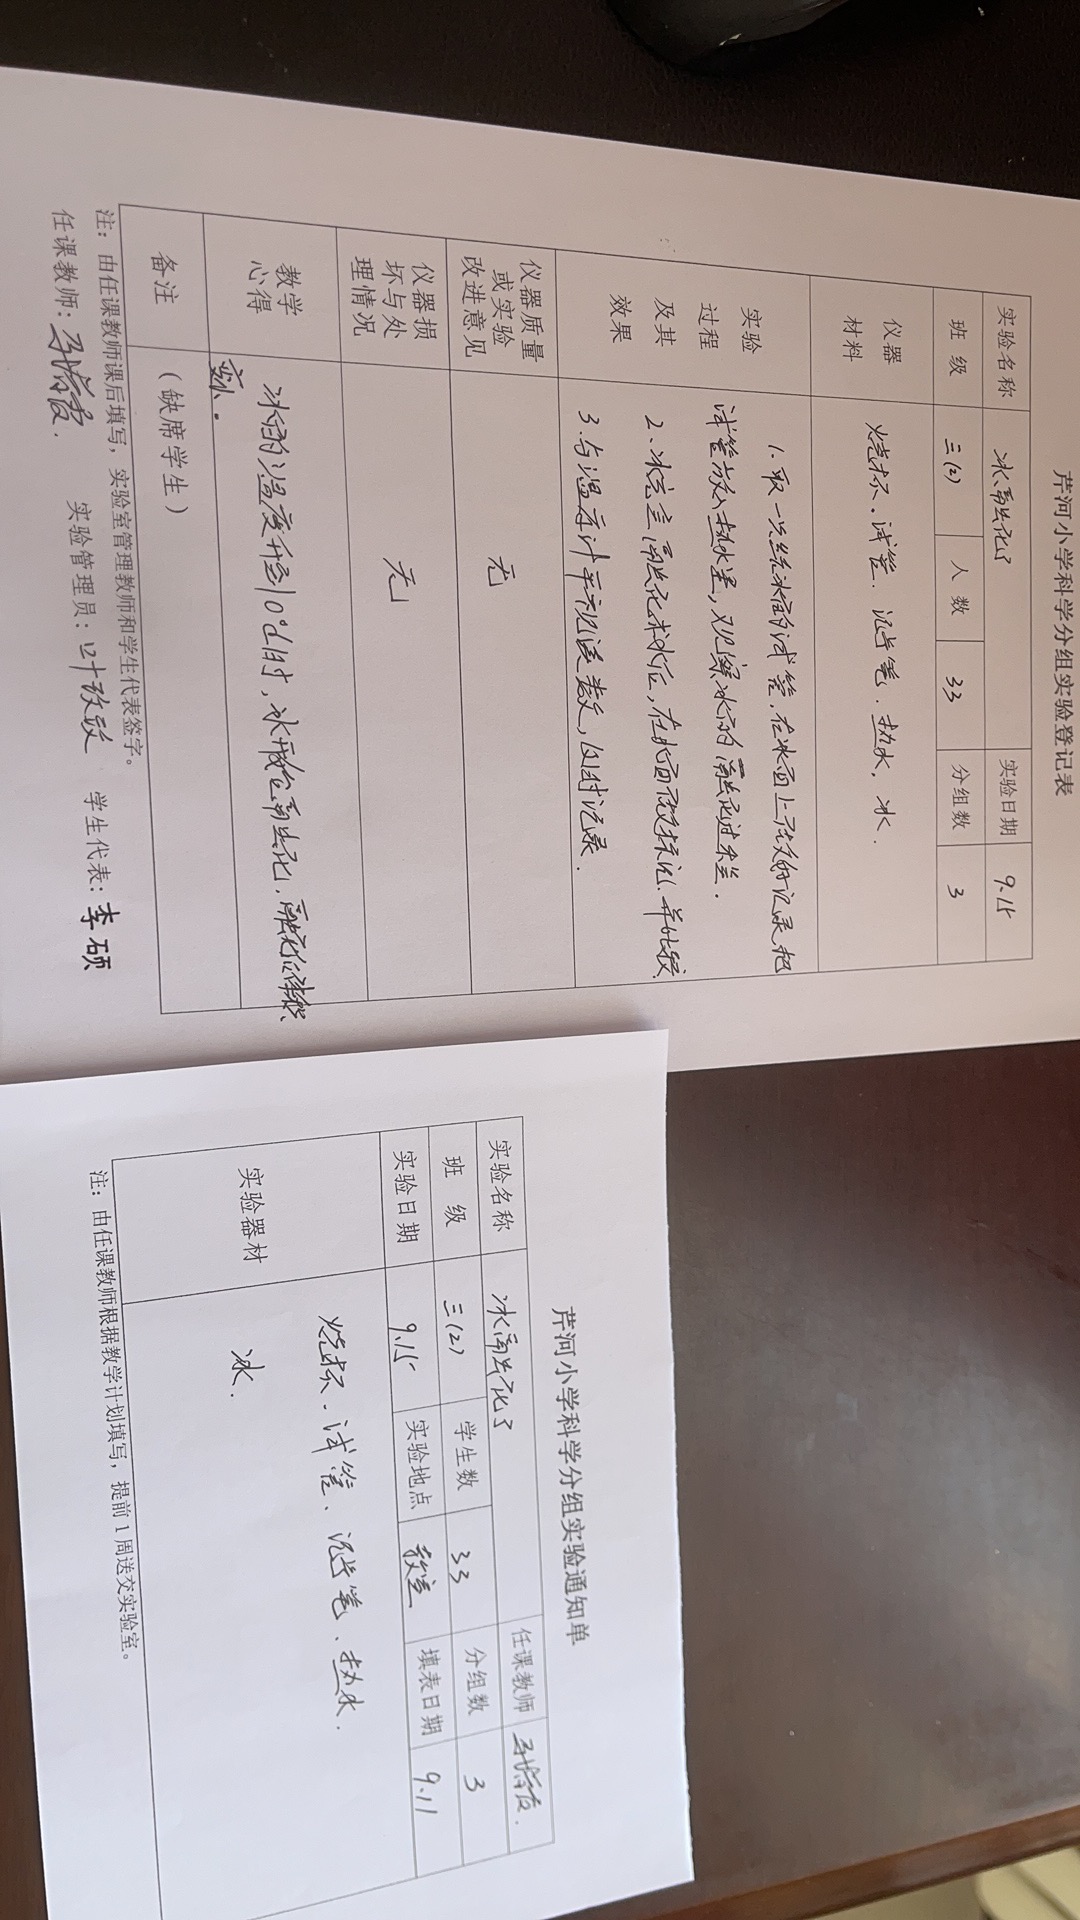 芹河小学科学分组实验登记表
实验名称 冰融化了 实验日期 9.15
班 级 三(2) 人 数 33 分组数 3
仪器
材料
烧杯、试管、记号笔、热水、冰.
实验
过程
及其
效果
1. 取一只结冰的试管,在冰面上
试管放入热水里,观察冰的融化过程.
2. 冰完全融化成水后,在水面
3. 与温度计平视读数,及时记录.
仪器质量
或实验
改进意见
无
仪器损
坏与处
理情况
无
教学
心得
冰的温度升至0℃时,冰
变小。
备注 (缺席学生)
注:由任课教师课后填写,实验室管理教师和学生代表签字。
任课教师: 实验管理员: 学生代表:李硕
芹河小学科学分组实验通知单
实验名称 冰融化了 任课教师
班 级 三(2) 学生数 33 分组数 3
实验日期 9.15 实验地点 教室 填表日期 9.11
实验器材
烧杯、试管、记号笔、热水.
冰.
注:由任课教师根据教学计划填写,提前1周送交实验室。